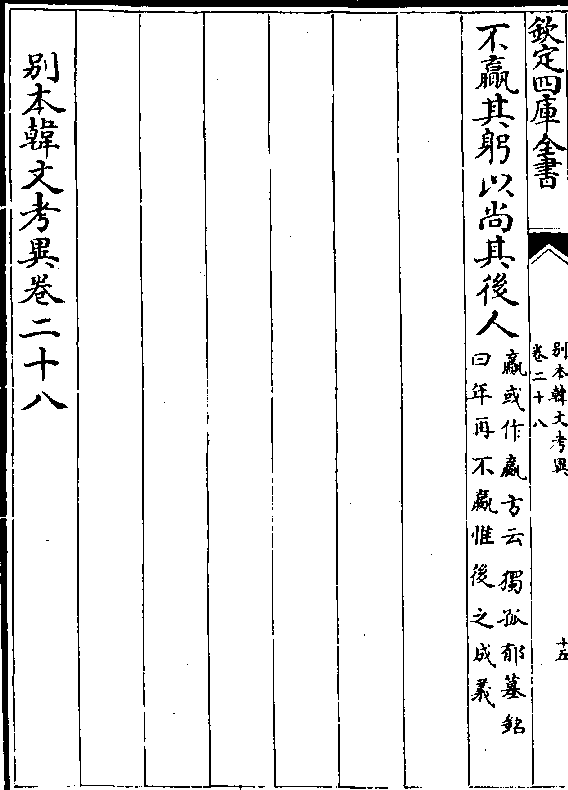 欽定四庫全書
别本韓文考異
卷二十八
十五
不贏其躬以尚其後人
贏或作嬴方云獨孤郁墓銘
曰年再不贏惟後之成義
别本韓文考異卷二十八